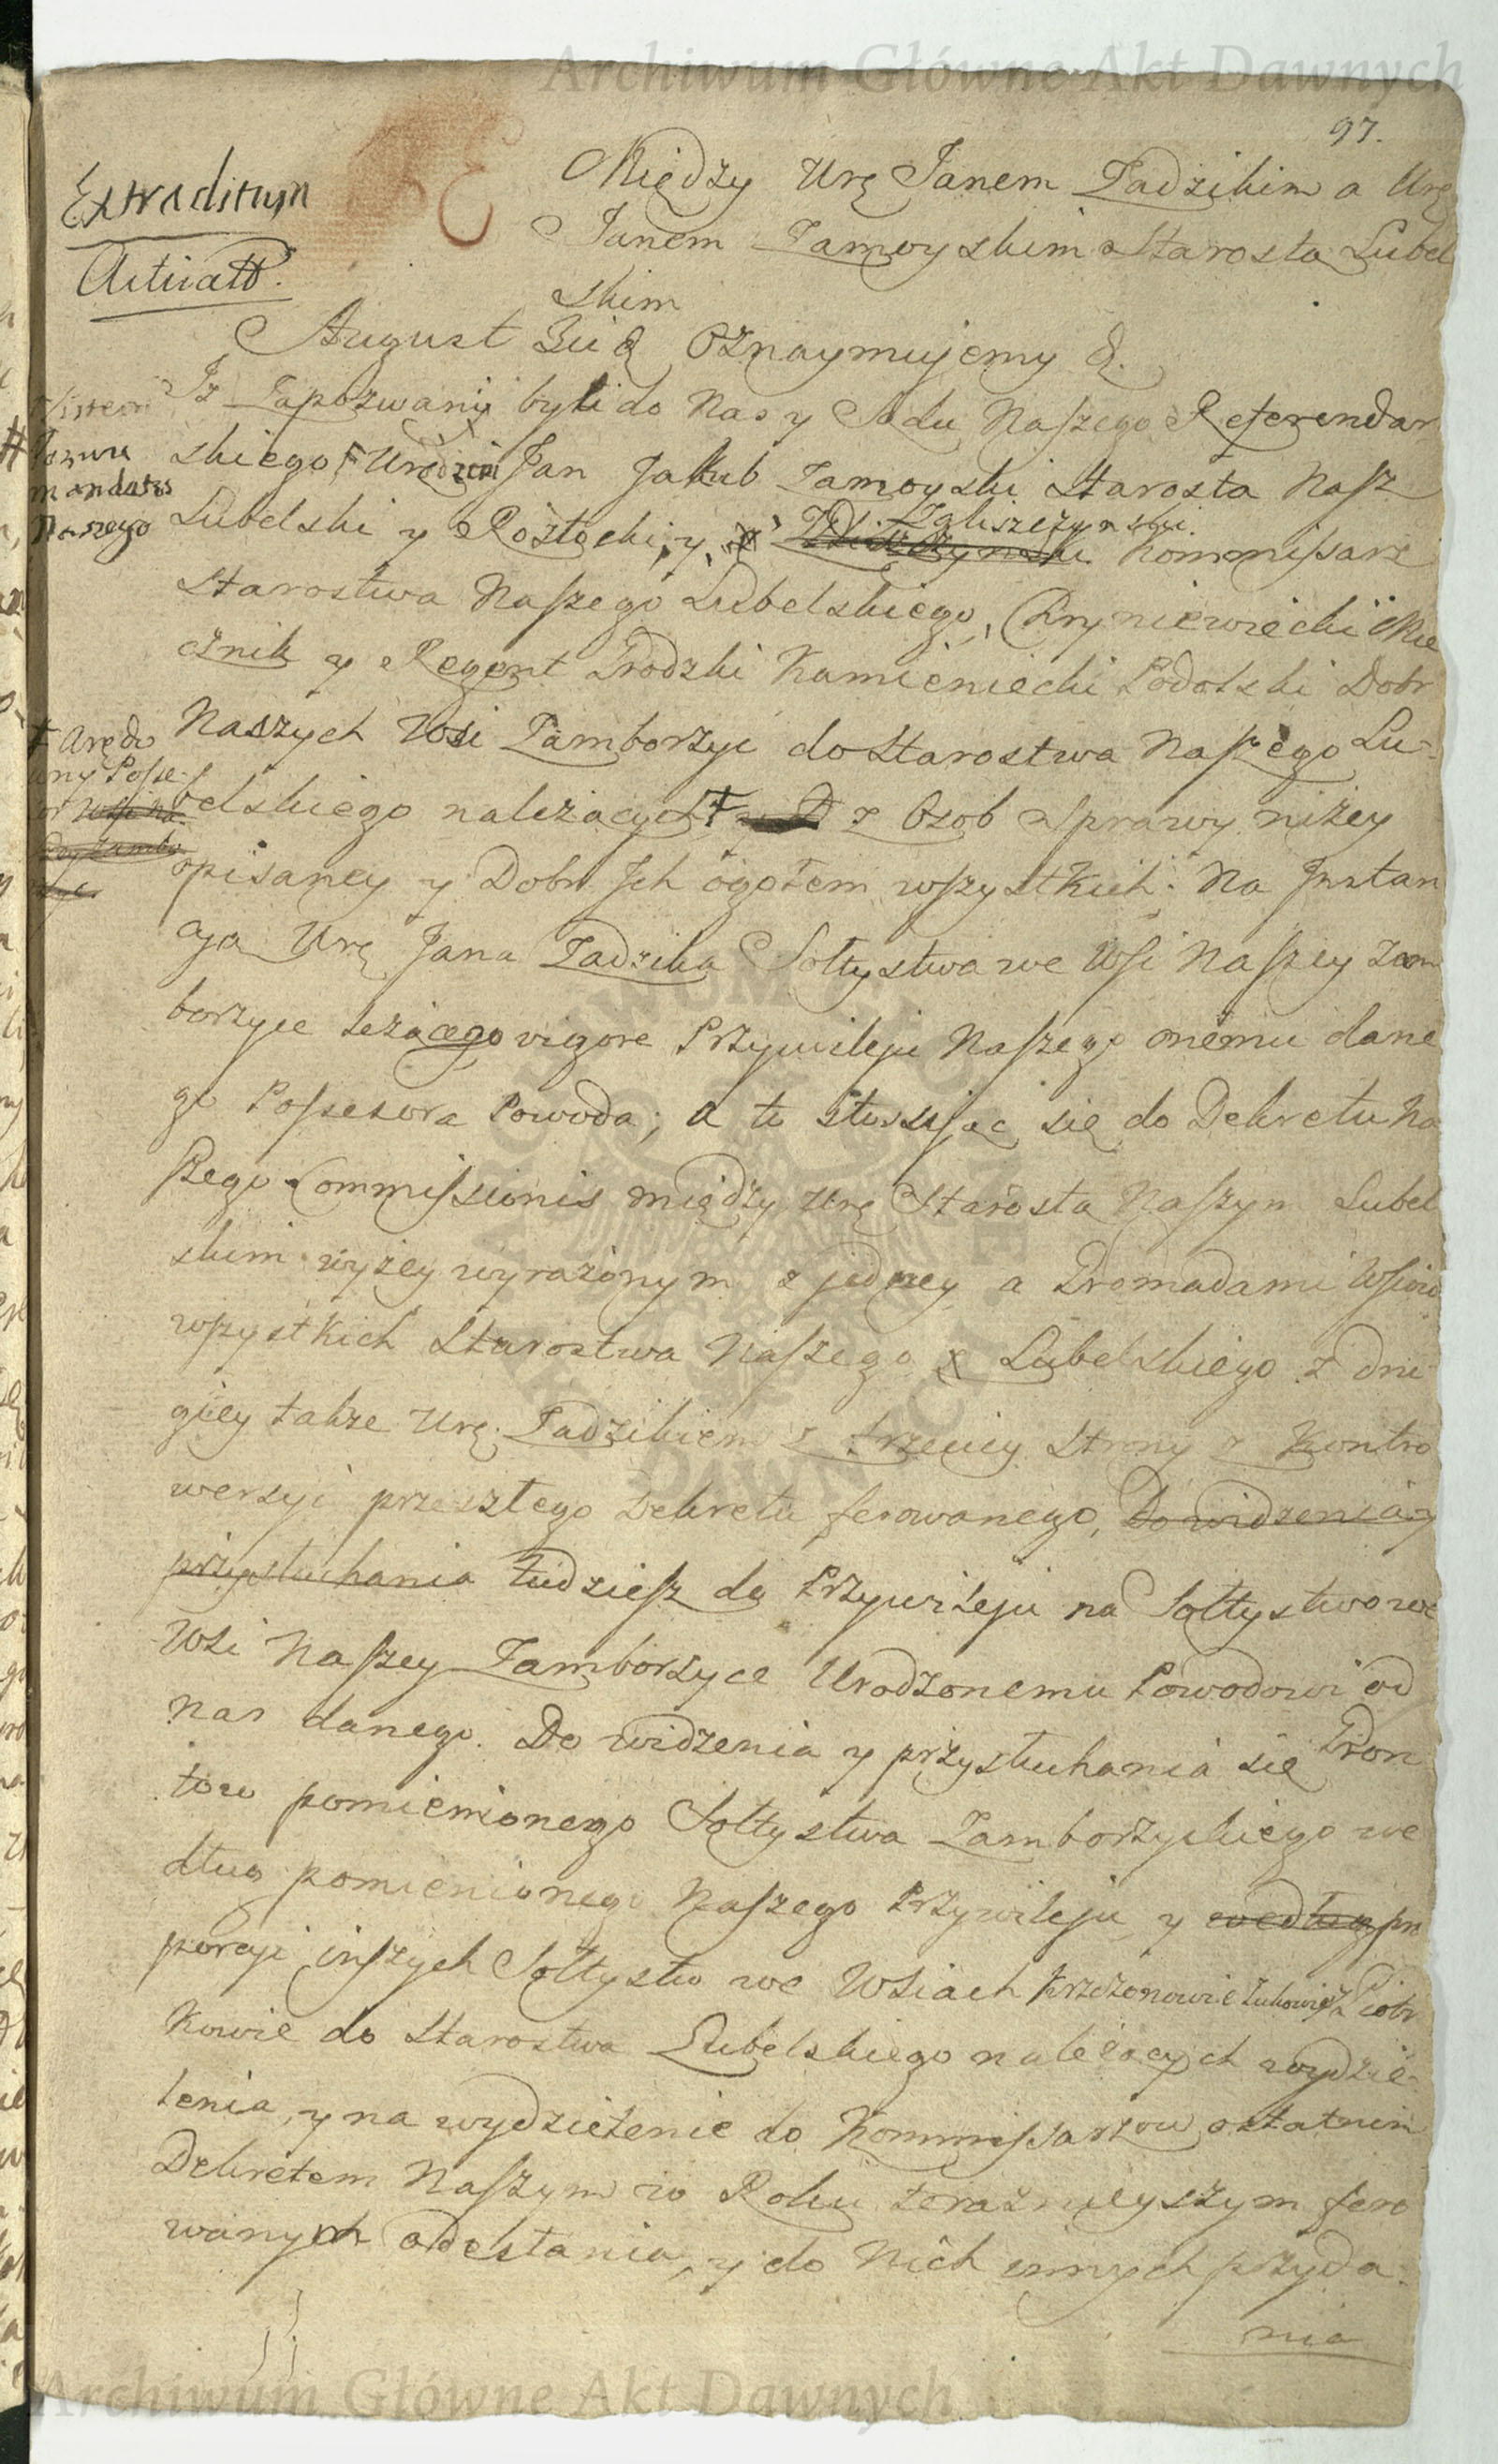 Archiwum Główne Akt Dawnych
97.
Extraditum
Actuatt.
Między Urę Janem Zadzikim a Urę
Janem Zamoyskim Starostą Lubel
skim
August 3ci & Oznaymujemy &.
Iż Zapozwani byli do Nas y Sądu Naszego Referendar
# pozwu
mandatis
Naszego
skiego, Urodzeni Jan Jakub Zamoyski Starosta Nasz
Lubelski y Rostocki, y Zgliszczynski Kommissarz
Starostwa Naszego Lubelskiego, Chryniewiecki Mie
cznik y Regent Grodzki Kamieniecki Podolski Dobr
Naszych Wsi Zamborzyc do Starostwa Naszego Lu-
belskiego należących z Osob Sprawy niżey
opisaney y Dobr Ich ogołem wszystkich. Na Instan
cyą Urę Jana Zadzika Sołtystwa we Wsi Naszey Zam
borzyce leżącego vigore Przywileju Naszego onemu dane
go Possesora Powoda; a to stosując się do Dekretu Na
szego Commissionis między Urę Starostą Naszym Lubel
skim wyżey wyrażonym z jedney a Gromadami Wsiow
wszystkich Starostwa Naszego Lubelskiego z dru
giey także Urę. Zadzikiem z trzeciey Strony z Kontro
wersyi przeszłego Dekretu ferowanego, Do widzenia y
przysłuchania tudziesz do Przywileju na Sołtystwo we
Wsi Naszey Zamborzyce Urodzonemu Powodowi od
nas danego. Do widzenia y przysłuchania się Gron
tow pomienionego Sołtystwa Zamborzyckiego we
dług pomienionego Naszego Przywileju y według pro
porcyi inszych Sołtystw we Wsiach Krzczonowie Żukowie Piotr
kowie do Starostwa Lubelskiego należących wydzie-
lenia, y na wydzielenie do Kommissarzow ostatnim
Dekretem Naszym w Roku teraznieyszym fero
wanym odesłania, y do Nich innych przyda-
nia
Archiwum Główne Akt Dawnych